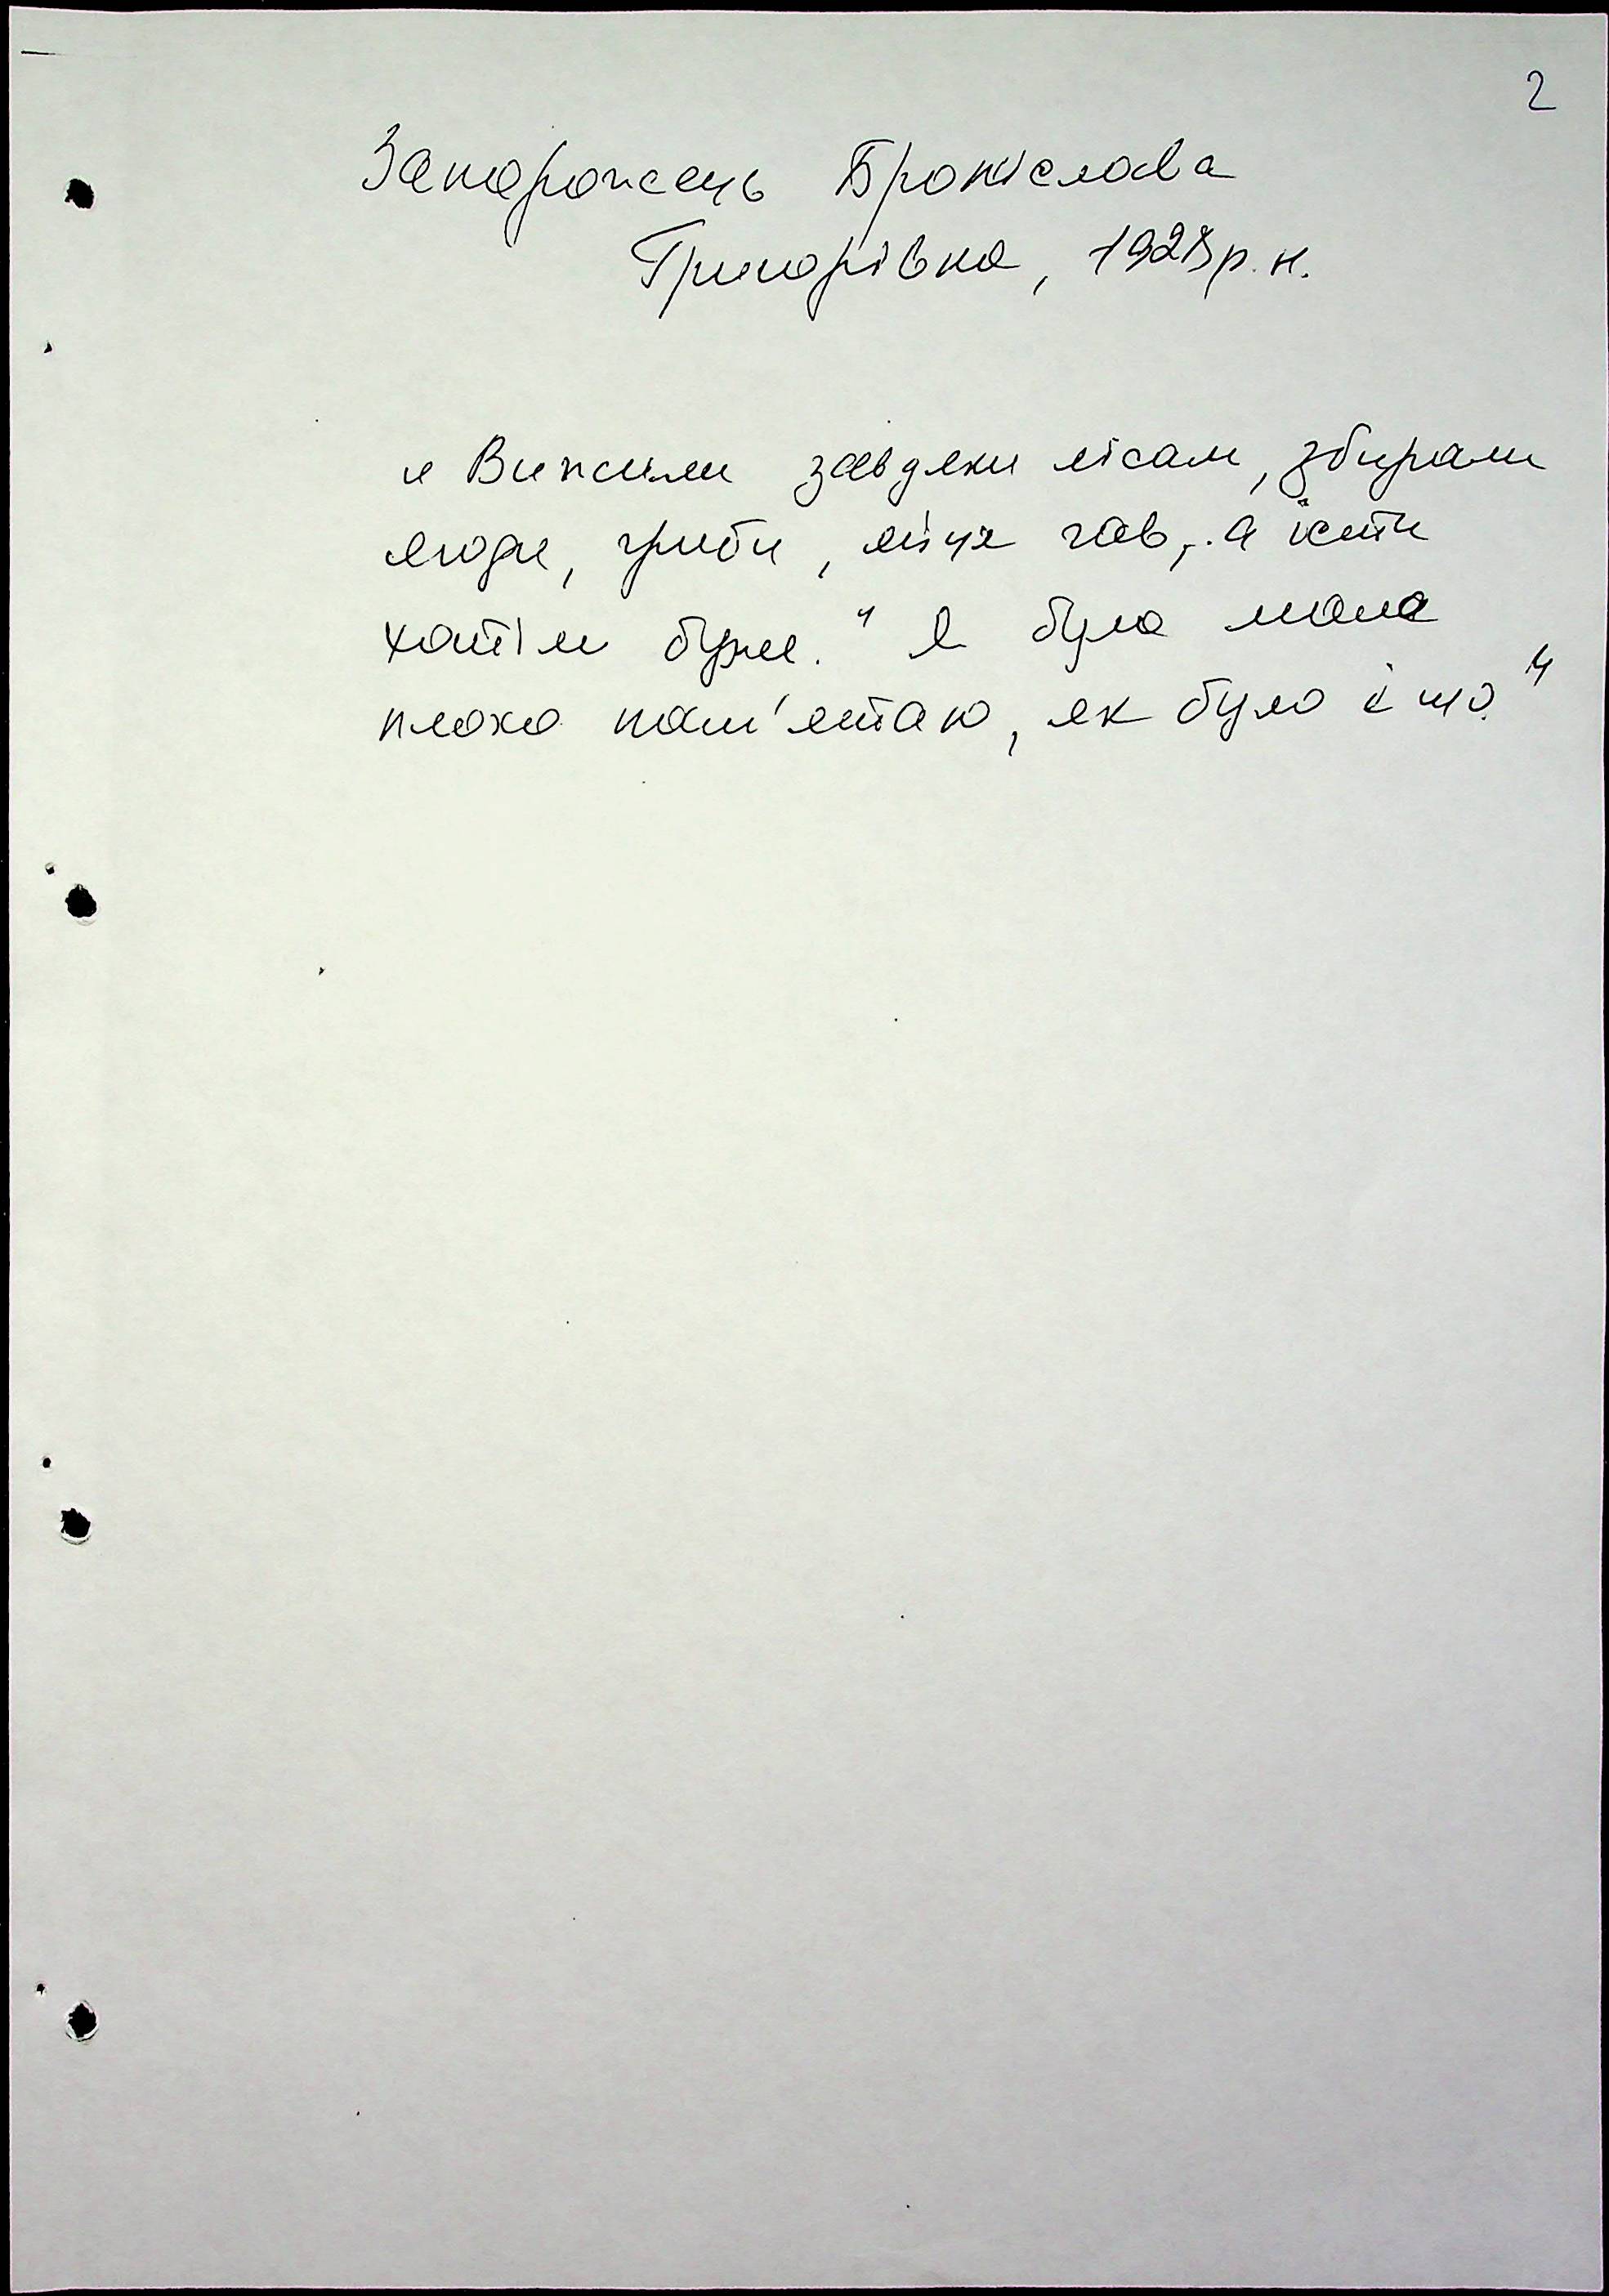 2
Запорожець Броніслава
Григорівна, 1928 р. н.
"Вижили завдяки лісам, збирали
ягоди, гриби, місяць а їсти
хотіли дуже." Я була мала
плохо пам'ятаю, як було і що."